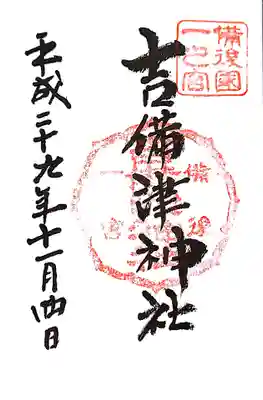 備後國
一之宮
吉備津神社
備後
一宮
平成二十九年十一月四日